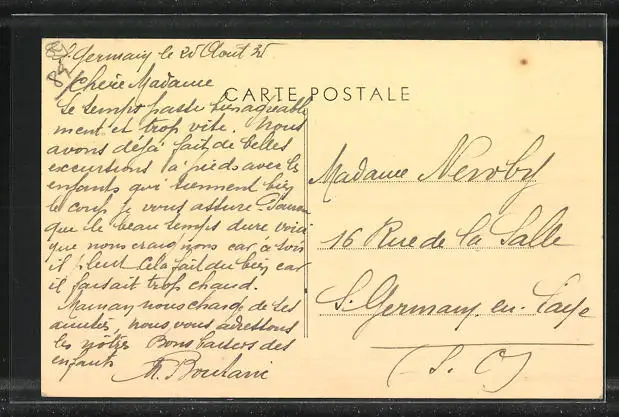 St. Germain le 20 Aout 35
Chère Madame
CARTE POSTALE
Le temps passe bien agréable
ment et trop vite. Nous
avons déjà fait de belles
excursions à pieds avec les
enfants qui tiennent bien
le coup je vous assure. Pourvu
que le beau temps dure voici
que nous craignons car ce soir
il pleut. Cela fait du bien car
il faisait trop chaud.
Maman nous charge de ses
amitiés, nous vous adressons
les nôtres Bons baisers des
enfants
Madame Newby
16 Rue de la Salle
St. Germain en Laye
(S. O)